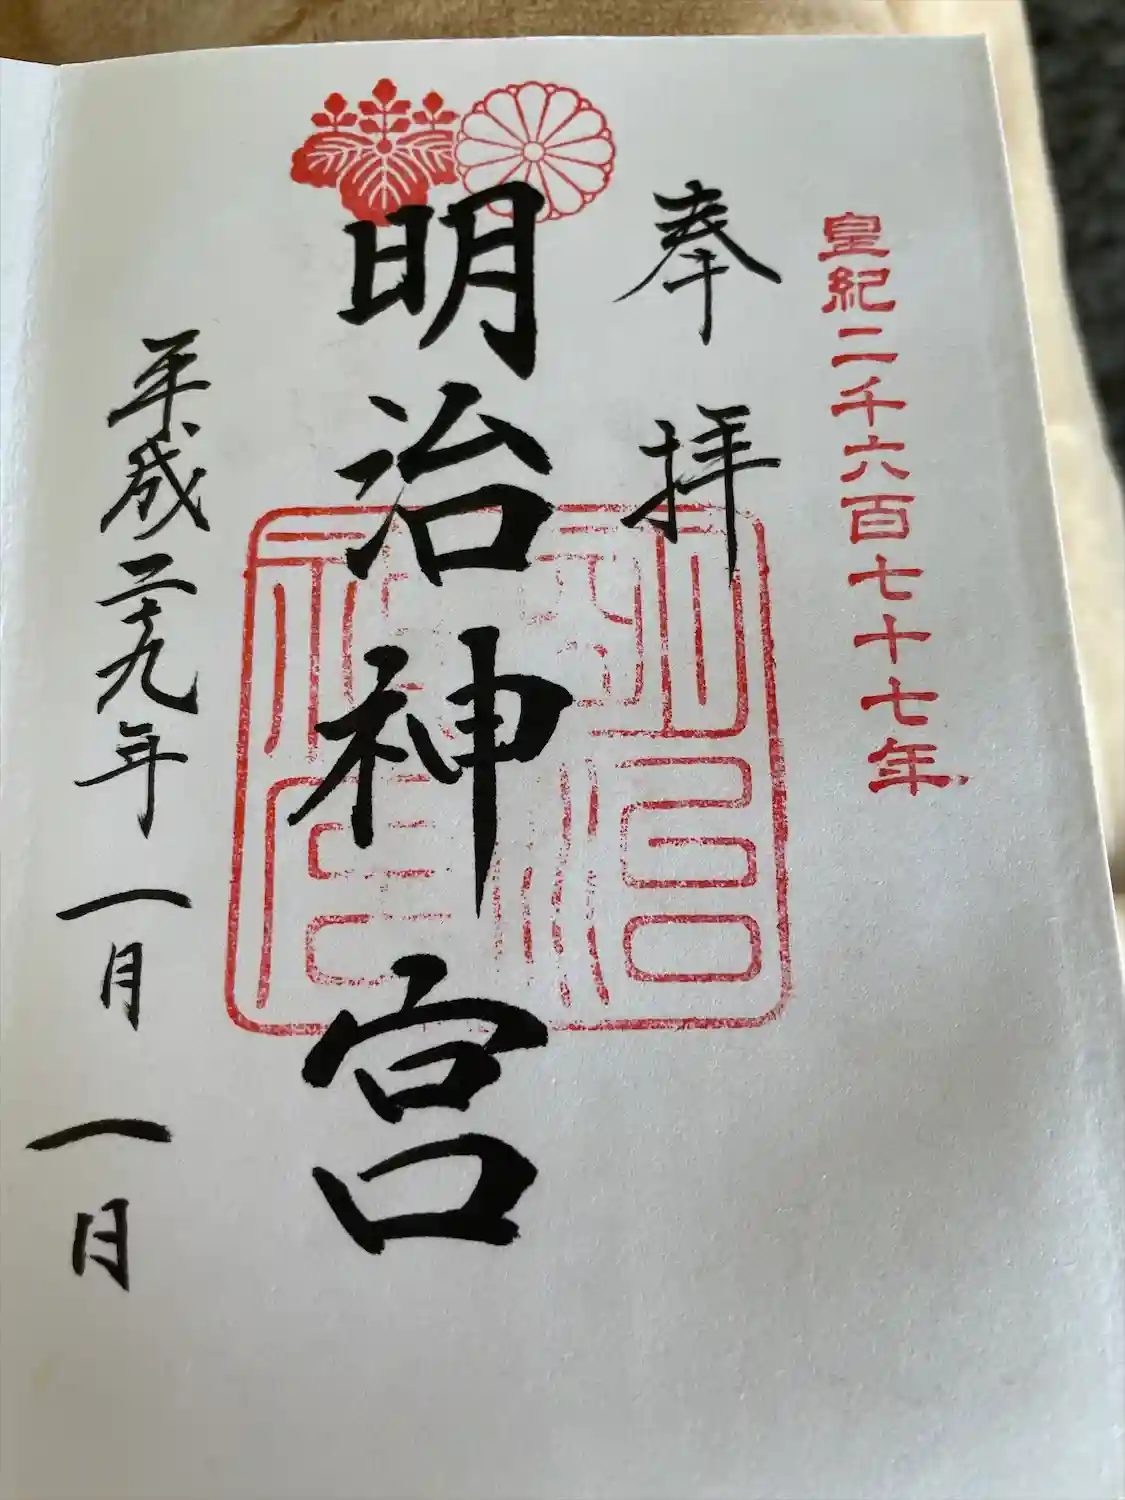 皇紀二千六百七十七年
奉拝
明治神宮
平成二十九年一月一日